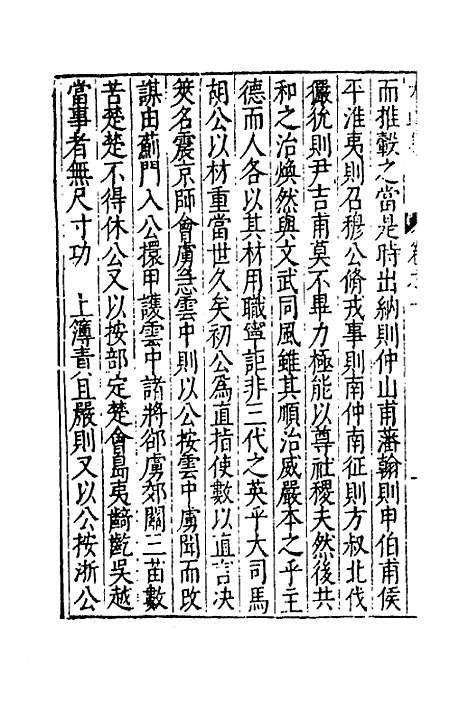 而推轂之當是時出納則仲山甫蕃翰則申伯甫侯
平淮夷則召穆公脩戎事則南仲南征則方叔北伐
玁狁則尹吉甫莫不畢力極能以尊社稷夫然後共
和之治煥然與文武同風雖其順治威嚴本之乎主
德而人各以其材用職寧詎非三代之英乎大司馬
胡公以材重當世久矣初公爲直指使數以直言决
筴名震京師會虜急雲中則以公按雲中虜聞而改
謀由薊門入公擐甲護雲中諸將郤虜郊關三苗數
苦楚楚不得休公又以按部定楚會島夷齮齕吳越
當事者無尺寸功 上簿責且嚴則又以公按浙公